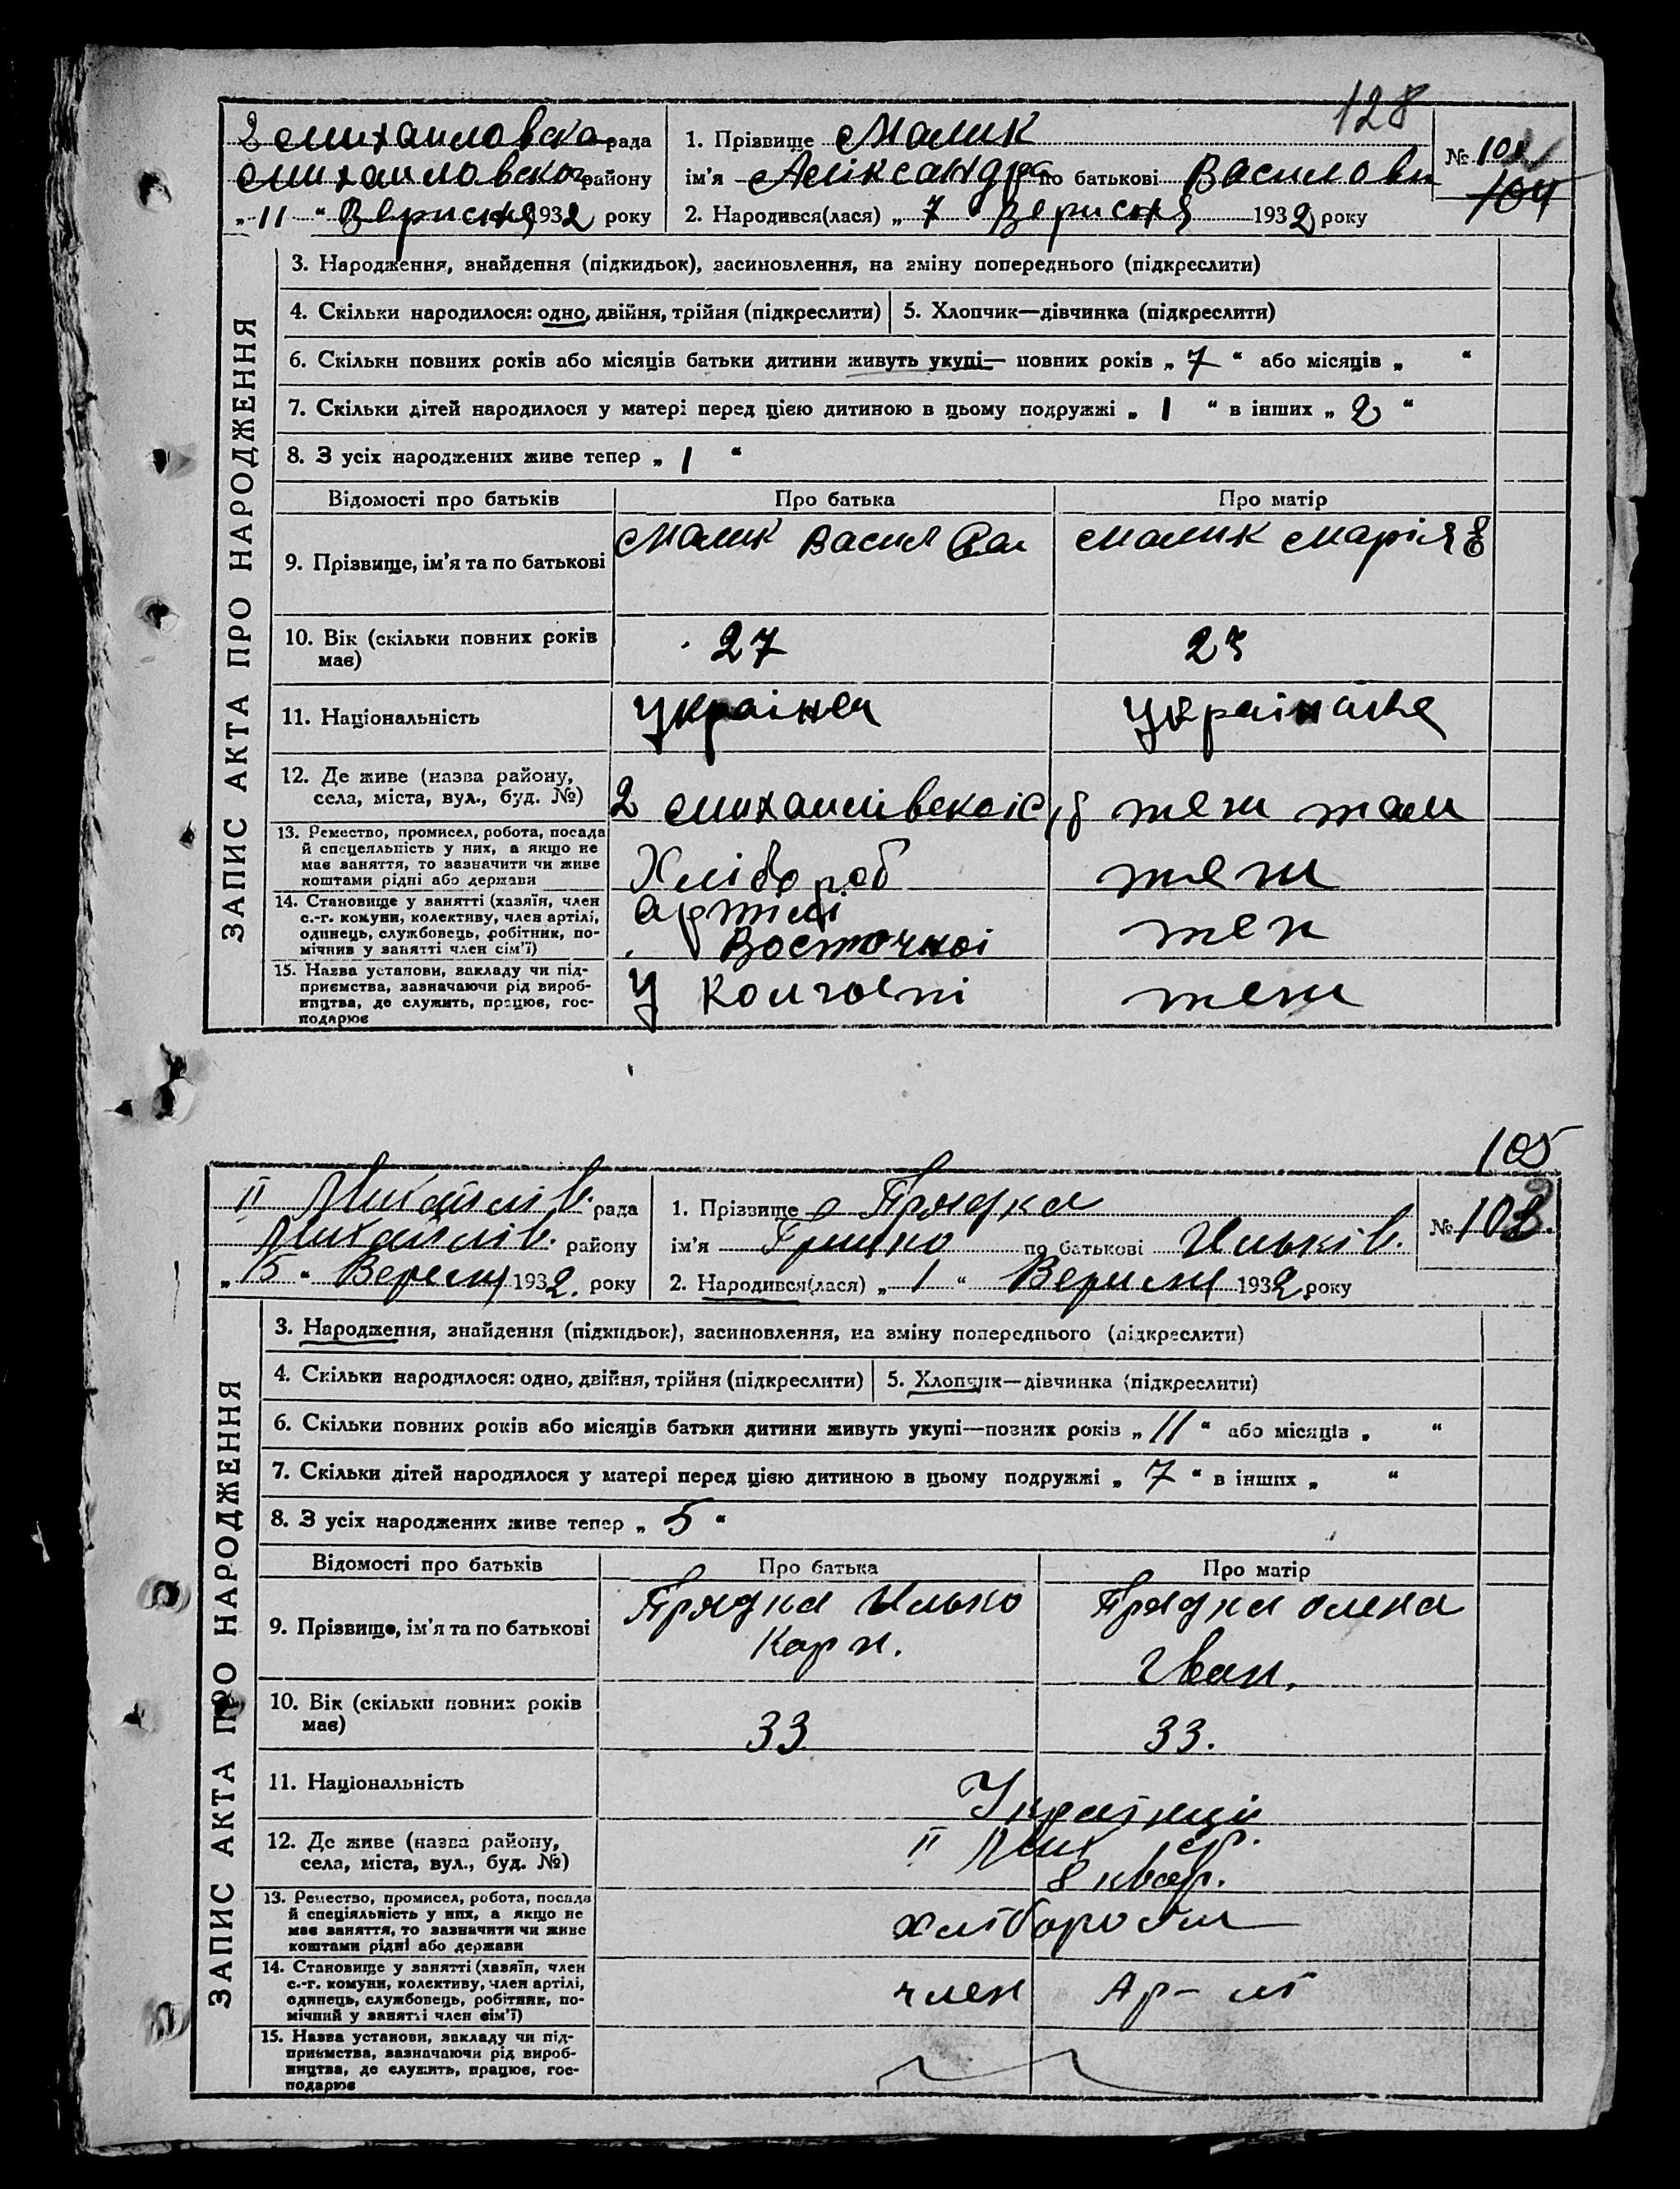 128
2 Михаиловска рада
Михаиловског району
„ 11 “ Верисня 1932 року
1. Прізвище Малик
ім'я Аліксандра по батькові Василови
2. Народився(лася) „ 7 “ Верисня 1932 року
№ 101
104
ЗАПИС АКТА ПРО НАРОДЖЕННЯ
3. Народження, знайдення (підкидьок), засиновлення, на зміну попереднього (підкреслити)
4. Скільки народилося: одно, двійня, трійня (підкреслити) 5. Хлопчик—дівчинка (підкреслити)
6. Скільки повних років або місяців батьки дитини живуть укупі— повних років „ 7 “ або місяців „ “
7. Скільки дітей народилося у матері перед цією дитиною в цьому подружжі „ 1 “ в інших „ 2 “
8. З усіх народжених живе тепер „ 1 “
Відомості про батьків Про батька Про матір
9. Прізвище, ім'я та по батькові Малик Васил Малик Марія Є
10. Вік (скільки повних років
має) 27 23
11. Національність Украінец Украінка
12. Де живе (назва району,
села, міста, вул., буд. №) 2 Михаилівскоі с/р теж там
13. Ремество, промисел, робота, посада
й спеціяльність у них, а якщо не
має заняття, то зазначити чи живе
коштами рідні або держави
Хлібороб теж
14. Становище у занятті (хазяїн, член
с.-г. комуни, колективу, член артілі,
одинець, службовець, робітник, по-
мічник у занятті член сім'ї)
артілі
Восточноі теж
15. Назва установи, закладу чи під-
приємства, зазначаючи рід вироб-
ництва, де служить, працює, гос-
подарює
У колгоспі теж
105
II Михайлів. рада
Михайлів. району
„ 15 “ Вересня 1932. року
1. Прізвище Прядка
ім'я Грицко по батькові Ильків.
2. Народився(лася) „ 1 “ Верисня 1932 року
№ 102.
ЗАПИС АКТА ПРО НАРОДЖЕННЯ
3. Народження, знайдення (підкидьок), засиновлення, на зміну попереднього (підкреслити)
4. Скільки народилося: одно, двійня, трійня (підкреслити) 5. Хлопчик—дівчинка (підкреслити)
6. Скільки повних років або місяців батьки дитини живуть укупі—повних років „ 11 “ або місяців „ “
7. Скільки дітей народилося у матері перед цією дитиною в цьому подружжі „ 7 “ в інших „ “
8. З усіх народжених живе тепер „ 5 “
Відомості про батьків Про батька Про матір
9. Прізвище, ім'я та по батькові Прядка Илько Прядка Олена
Карп. Іван.
10. Вік (скільки повних років
має) 33 33.
11. Національність Українці
12. Де живе (назва району,
села, міста, вул., буд. №) II Мих ср.
8 квар.
13. Ремество, промисел, робота, посада
й спеціяльність у них, а якщо не
має заняття, то зазначити чи живе
коштами рідні або держави
хлібороби
14. Становище у занятті (хазяїн, член
с.-г. комуни, колективу, член артілі,
одинець, службовець, робітник, по-
мічний у занятті член сім'ї)
член Ар-лі
15. Назва установи, закладу чи під-
приємства, зазначаючи рід вироб-
ництва, де служить, працює, гос-
подарює